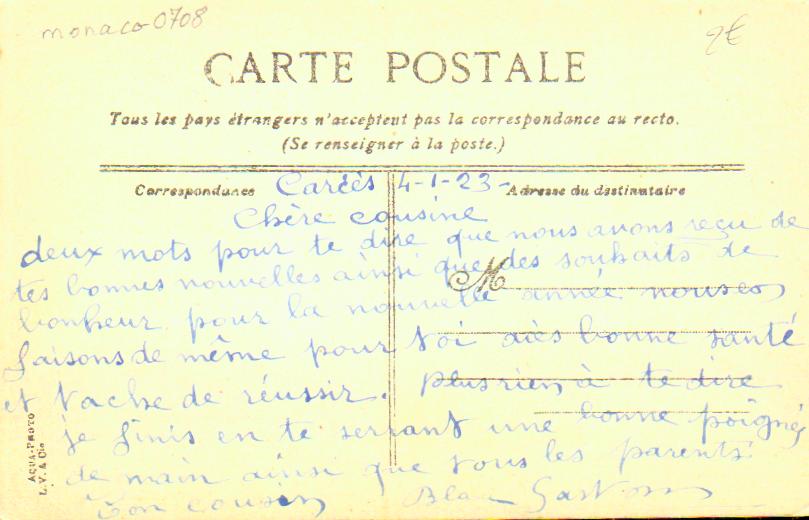 monaco 0708
2€
CARTE POSTALE
Tous les pays étrangers n'acceptent pas la correspondance au recto.
(Se renseigner à la poste.)
Correspondance
Adresse du destinataire
Carcés 4-1-23-
Chère cousine
deux mots pour te dire que nous avons reçu de
tes bonnes nouvelles ainsi que des souhaits de
M
bonheur pour la nouvelle année nous en
faisons de même pour toi aies bonne santé
et tache de réussir. plus rien à te dire
je finis en te serrant une bonne poigné
de main ainsi que tous les parents.
Ton cousin
AQUA-PHOTO
L. V. & Cie